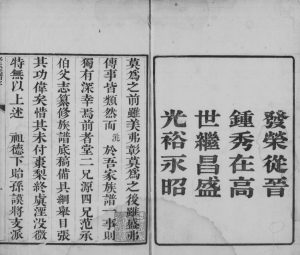 發榮從晉
鍾秀在高
世繼昌盛
光裕永昭
莫為之前雖美弗彰莫為之後雖盛弗
傳事皆類然而於吾家族譜一事則
獨有深幸焉前者堂二兄源四兄范承
伯父志纂修族譜底稿備具綱舉目張
其功偉矣惜其未付棗梨終虞湮沒微
特無以上述 祖德下貽孫謀將支派